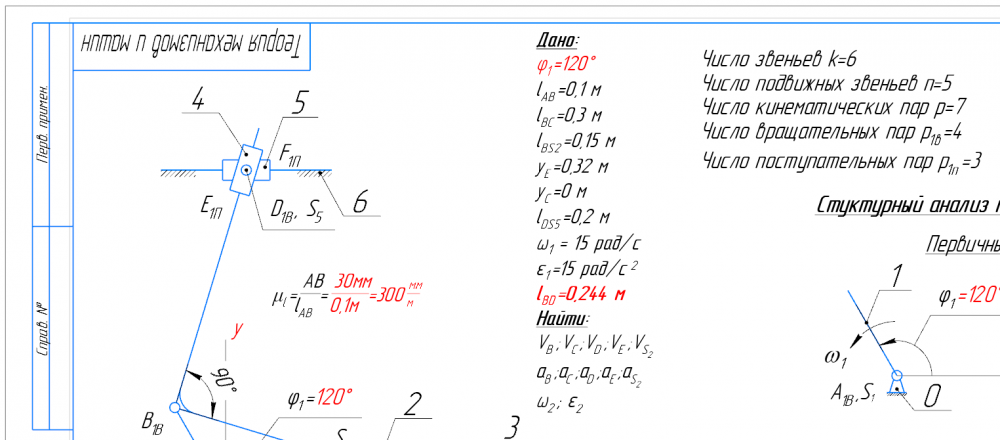 Теория механизмов и машин
Перв. примен.
Справ. №
4
5
F1П
6
E1П
D1В, S5
μl= AB/lAB = 30мм/0,1м =300 мм/м
y
90°
φ1=120°
2
B1В
S
3
Дано:
φ1=120°
lAB=0,1 м
lBC=0,3 м
lBS2=0,15 м
yE=0,32 м
yC=0 м
lDS5=0,2 м
ω1 = 15 рад/с
ε1=15 рад/с²
lBD=0,244 м
Найти:
VB; VC; VD; VE; VS2
aB; aC; aD; aE; aS2
ω2; ε2
Число звеньев k=6
Число подвижных звеньев n=5
Число кинематических пар p=7
Число вращательных пар p1в=4
Число поступательных пар p1п=3
Стуктурный анализ
Первичны
1
φ1=120°
ω1
A1В, S1
0